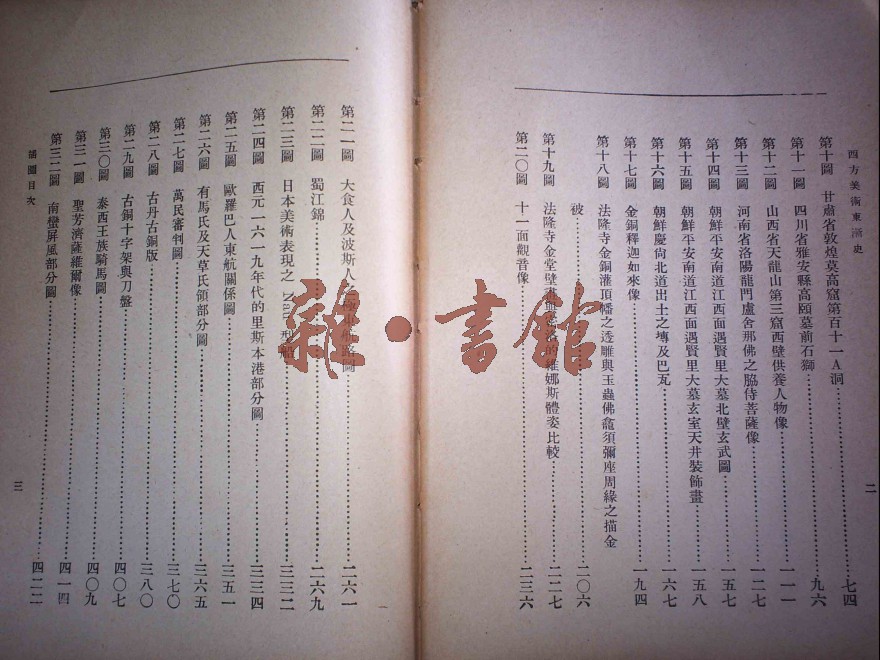 西方美術東漸史
第十圖 甘肅省敦煌莫高窟第百十一A洞……七四
第十一圖 四川省雅安縣高頤墓前石獅……九六
第十二圖 山西省天龍山第三窟西壁供養人物像……一一一
第十三圖 河南省洛陽龍門盧舍那佛之脇侍菩薩像……一二七
第十四圖 朝鮮平安南道江西面遇賢里大墓北壁玄武圖……一五七
第十五圖 朝鮮平安南道江西面遇賢里大墓玄室天井裝飾畫……一五八
第十六圖 朝鮮慶尙北道出土之塼及巴瓦……一六七
第十七圖 金銅釋迦如來像……一九四
第十八圖 法隆寺金銅灌頂幡之透雕與玉蟲佛龕須彌座周緣之描金
被……二〇六
第十九圖 法隆寺金堂壁畫與 的維娜斯體姿比較……二二七
第二〇圖 十一面觀音像……二三六
二
第二一圖 大食人及波斯人 圖……二六一
第二二圖 蜀江錦……二六九
第二三圖 日本美術表現之 型船……三三二
第二四圖 西元一六一九年代的里斯本港部分圖……三三四
第二五圖 歐羅巴人東航關係圖……三五一
第二六圖 有馬氏及天草氏領部分圖……三六五
第二七圖 萬民審判圖……三七〇
第二八圖 古丹古銅版……三八〇
第二九圖 古銅十字架與刀盤……四〇七
第三〇圖 泰西王族騎馬圖……四〇九
第三一圖 聖芳濟薩維爾像……四一四
第三二圖 南蠻屏風部分圖……四二二
插圖目次
三
雜·書館